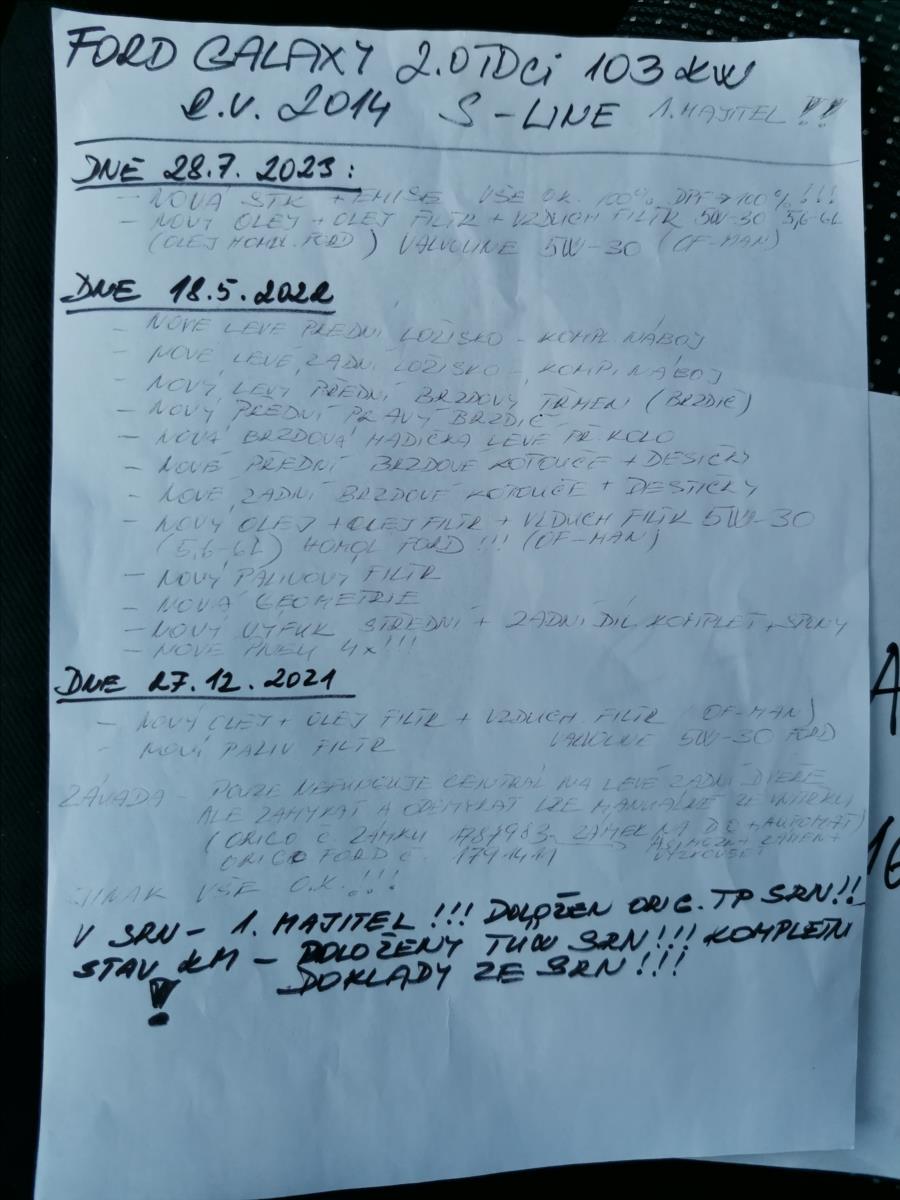 FORD GALAXY 2.0TDCi 103 kW
R.V. 2014 S-LINE 1. MAJITEL !!
DNE 28.7. 2023:
- NOVÁ STK + EMISE VŠE OK. 100% DPF → 100% !!!
- NOVÝ OLEJ + OLEJ FILTR + VZDUCH FILTR 5W-30 5,6-6L
(OLEJ HOMOL. FORD) VALVOLINE 5W-30 (OF-MAN)
DNE 18.5.2022
- NOVÉ LEVÉ PŘEDNÍ LOŽISKO - KOMPL. NÁBOJ
- NOVÉ LEVÉ ZADNÍ LOŽISKO - KOMPL. NÁBOJ
- NOVÝ LEVÝ PŘEDNÍ BRZDOVÝ TŘMEN (BRZDIČ)
- NOVÝ PŘEDNÍ PRAVÝ BRZDIČ
- NOVÁ BRZDOVÁ HADIČKA LEVÉ PŘ. KOLO
- NOVÉ PŘEDNÍ BRZDOVÉ KOTOUČE + DESIČKY
- NOVÉ ZADNÍ BRZDOVÉ KOTOUČE + DESTIČKY
- NOVÝ OLEJ + OLEJ FILTR + VZDUCH FILTR 5W-30
(5,6-6L) HOMOL FORD !!! (OF-MAN)
- NOVÝ PALIVOVÝ FILTR
- NOVÁ GEOMETRIE
- NOVÝ VÝFUK STŘEDNÍ + ZADNÍ DÍL KOMPLET, SPONY
- NOVÉ PNEU 4x!!!
DNE 27.12.2021
- NOVÝ OLEJ + OLEJ FILTR + VZDUCH. FILTR (OF-MAN)
- NOVÝ PALIV FILTR VALVOLINE 5W-30 FORD
ZÁVADA - POUZE NEFUNGUJE CENTRÁL NA LEVÉ ZADNÍ DVEŘE
ALE ZAMYKAT A ODEMYKAT LZE MANUÁLNĚ ZE VNITŘKU
(ORIGO Č. ZÁMKU 1787983 ZÁMEK NA DO + AUTOMAT)
ORIGO FORD Č. 1791411
JINAK VŠE O.K. !!!
V SRN - 1. MAJITEL !!! DOLOŽEN ORIG. TP SRN!!
STAV KM - DOLOŽENY TUW SRN!!! KOMPLETNI
! DOKLADY ZE SRN!!!
A
16